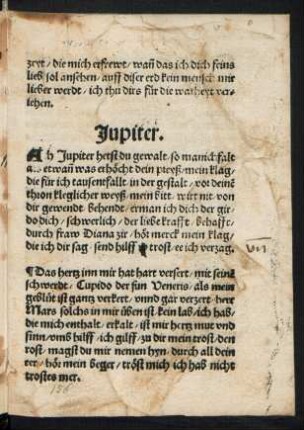 zeyt / die mich erfrewt / wañ das ich dich feins
lieb sol ansehen / auff diser erd kein mensch mir
lieber werdt / ich thu dirs für die warheyt ver-
iehen.
Jupiter.
Ah Jupiter hetst du gewalt / so manichfalt
etwañ was erhöcht dein preyß / mein klag /
die für ich tausentfallt in der gestalt / vor deinē
thron kleglicher weyß / mein bitt würt nit von
dir gewendt behendt / erman ich dich der gir
do dich / schwerlich / der liebe krafft behafft /
durch fraw Diana zir / hőt merck mein klag /
die ich dir sag / send hilff trost / ee ich verzag.
¶ Das hertz inn mir hat hart versert / mit seinē
schwerdt / Cupido der sun Veneris / als mein
geblüt ist gantz verkert / vnnd gar verzert / herr
Mars solchs in mir üben ist / kein lab / ich hab /
die mich enthalt / erkalt / ist mir hertz mut vnd
sinn / vms hilff ich gilff / zu dir mein trost / den
rost / magst du mir nemen hyn / durch all dein
er / hőt mein beger / tröst mich ich hab nicht
trostes mer.